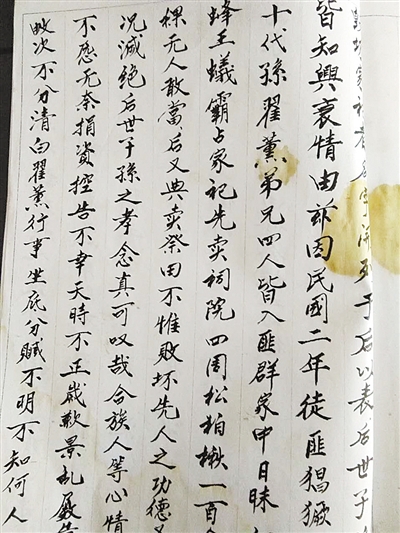 名字開列于后以表后世子
皆知興衰情由茲因民國二年徒匪猖獗
十代孫翟薰弟兄四人皆入匪群家中日昧
蜂王蟻霸占家祀先卖祠院四周松柏楸一百
稞无人敢當后又典卖祭田不惟败坏先人之功德又
况滅絕后世子孫之孝念真可叹哉合族人等心情
不愿无奈捐資控告不幸天時不正歲歉景乱
次不分清白翟薰行事坐底分贓不明不知何人